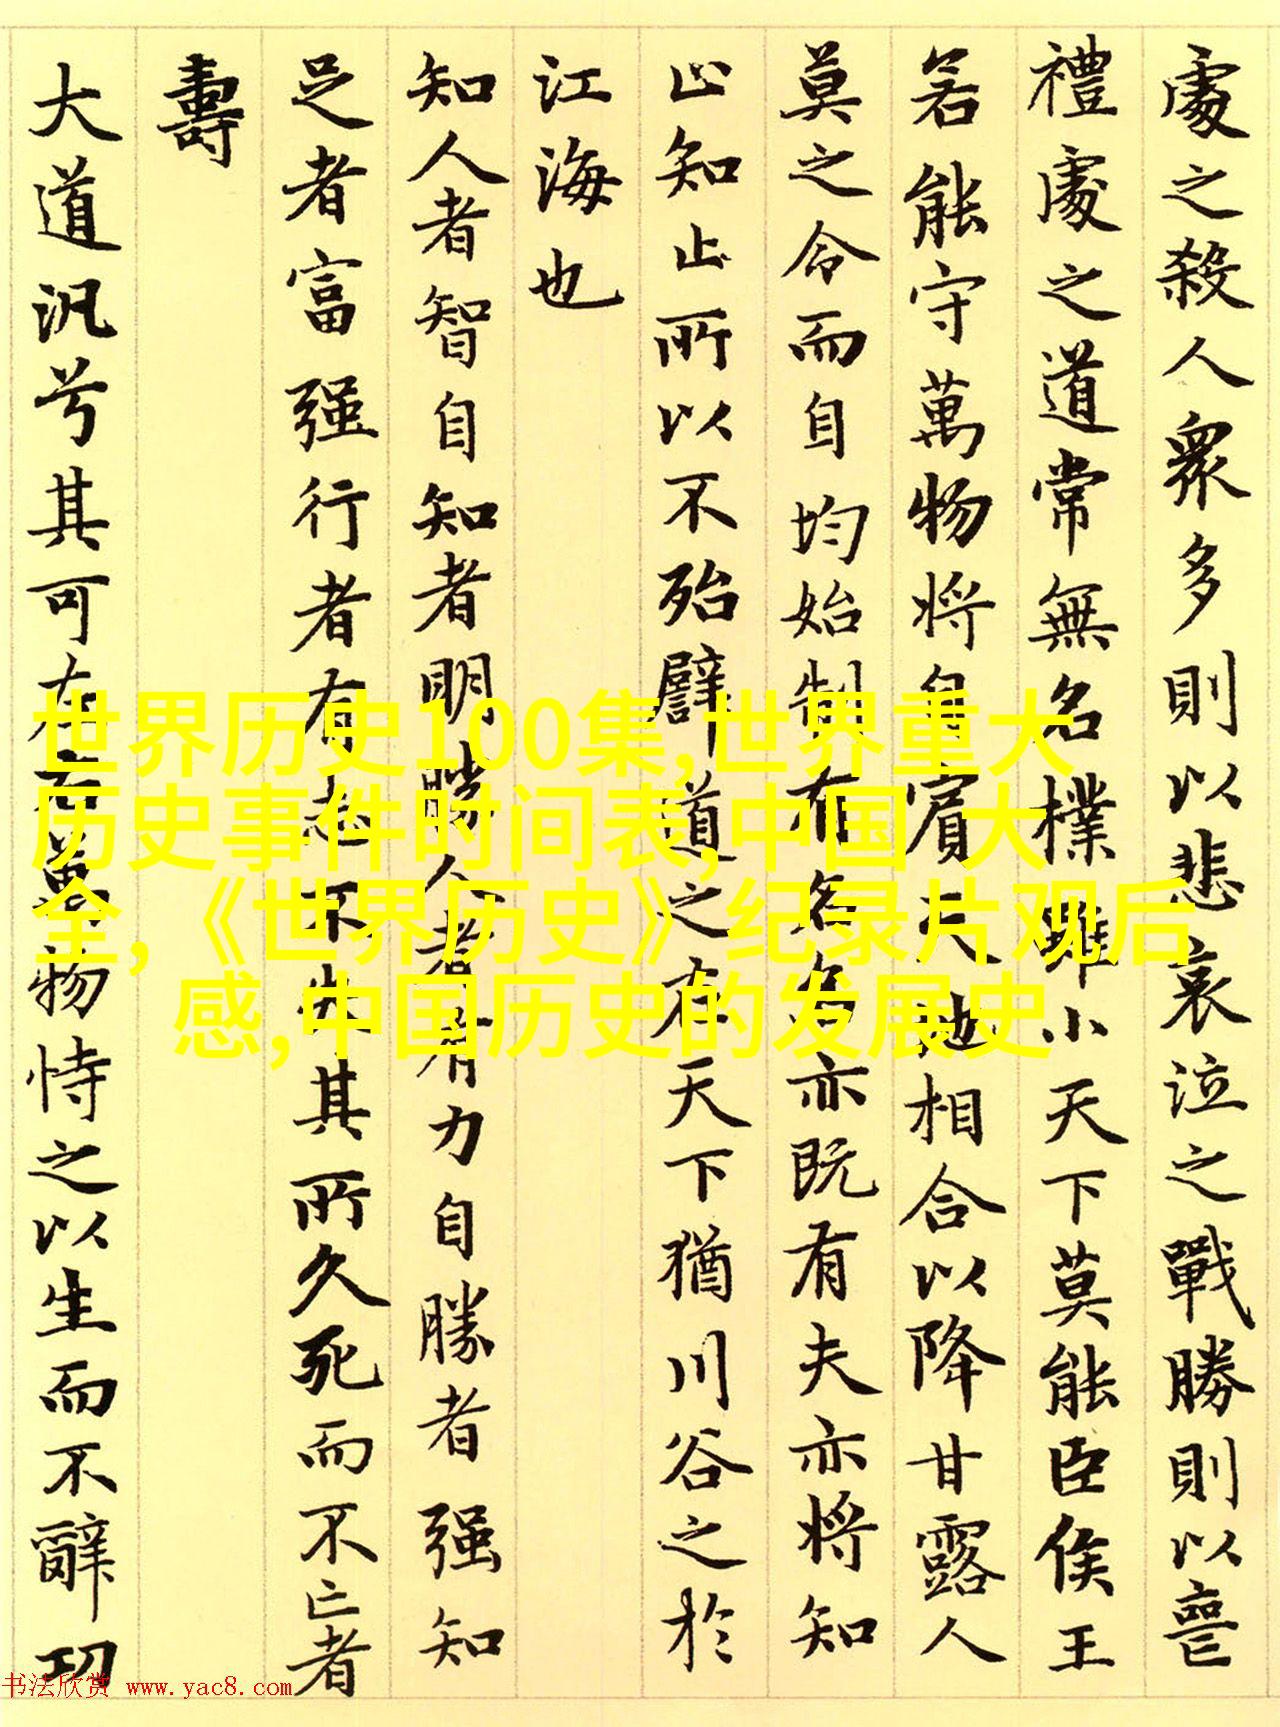 處之殺人眾多則以悲哀泣之戰勝則以喪
禮處之道常無名樸雖小天下莫能臣侯王
若能守萬物將自賓天地相合以降甘露人
莫之令而自均始制有名名亦既有夫亦將知
止知止所以不殆譬道之在天下猶川谷之於
江海也
知人者智自知者明勝人者有力自勝者强知
足者富强行者有志不失其所久死而不亡者
壽
大道汎兮其可左右萬物恃之以生而不辭功
世界历史100集,世界重大
历史事件时间表,中国 大
全,《世界历史》纪录片观后
感,中国历史的发展史
书法欣赏 www.yac8.com